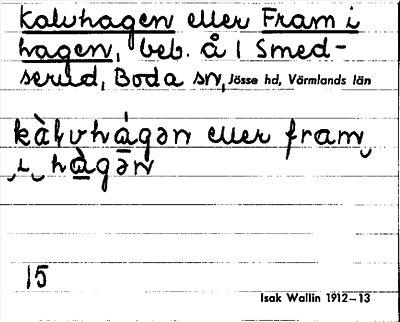 kalvhagen eller Fram i
hagen, beb. å 1 Smed-
serud, Boda sn, Jösse hd, Värmlands län
kàlvhágən eller fram
i hàgən
15
Isak Wallin 1912–13